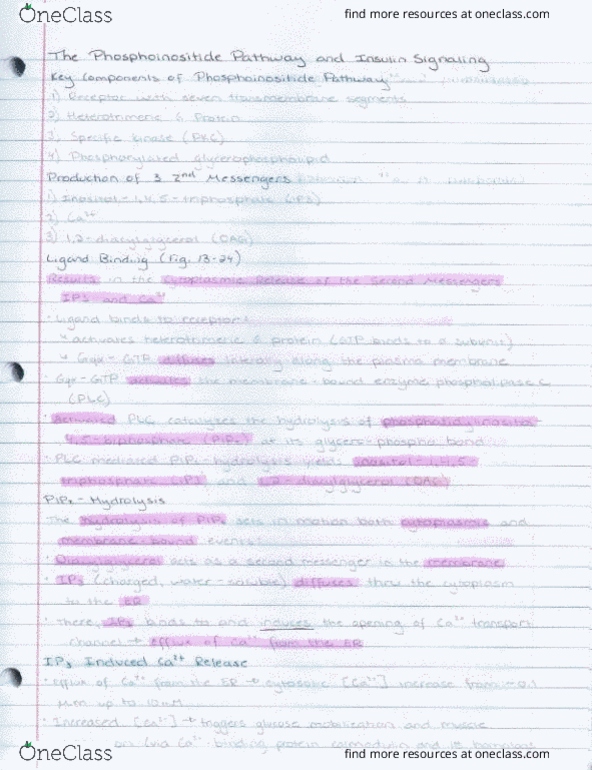 OneClass
find more resources at oneclass.com
The Phosphoinositide Pathway and Insulin Signaling
Key Components of Phosphoinositide Pathway
1) Receptor with seven transmembrane segments
2) Heterotrimeric G Protein
3) Specific kinase (PKC)
4) Phosphorylated glycerophospholipid
Production of 3 2nd Messengers
1) Inositol-1,4,5-triphosphate (IP3)
2) Ca2+
3) 1,2-diacylglycerol (DAG)
Ligand Binding (Fig. 13-24)
Results in the cytoplasmic Release of the Second Messengers
IP3 and Ca2+
· Ligand binds to receptor
↳ activates heterotrimeric G protein (GTP binds to α subunit)
↳ Gqα - GTP diffuses laterally along the plasma membrane
· Gqα - GTP activates the membrane-bound enzyme phospholipase C
(PLC)
· Activated PLC catalyzes the hydrolysis of phosphatidylinositol-
4,5-biphosphate (PIP2) at its glycero-phospho bond
· PLC mediated PIP2-hydrolysis yields inositol-1,4,5-
triphosphate (IP3) and 1,2-diacylglycerol (DAG)
PIP2 - Hydrolysis
The hydrolysis of PIP2 sets in motion both cytoplasmic and
membrane-bound events:
· Diacylglycerol acts as a second messenger in the membrane
· IP3 (charged, water-soluble) diffuses thru the cytoplasm
to the ER
· There, IP3 binds to and induces the opening of Ca2+ transport
channel → efflux of Ca2+ from the ER
IP3 Induced Ca2+ Release
· efflux of Ca2+ from the ER → cytosolic [Ca2+] increase from ~0.1
μm up to 10 μM
· Increased [Ca2+] → triggers glucose mobilization and muscle
on (via Ca2+-binding protein calmodulin and its
OneClass
find more resources at oneclass.com